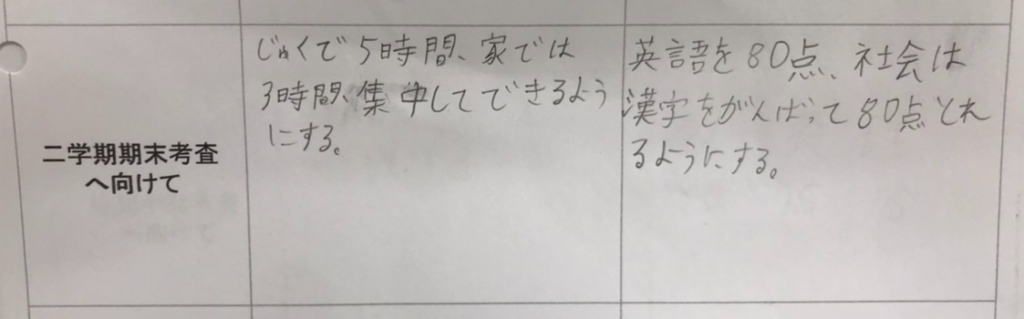 二学期期末考査
へ向けて
じゅくで5時間、家では
3時間、集中してできるよう
にする。
英語を80点、社会は
漢字をがんばって80点とれ
るようにする。